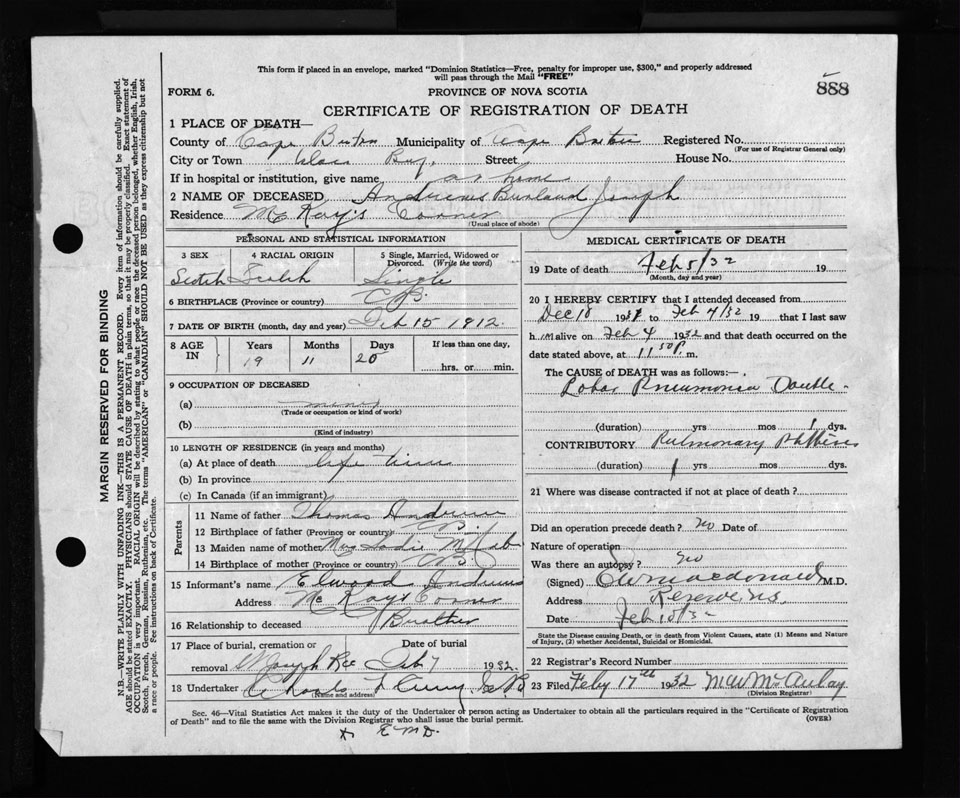 This form if placed in an envelope, marked "Dominion Statistics—Free, penalty for improper use, $300," and properly addressed
will pass through the Mail "FREE"
888
FORM 6.
PROVINCE OF NOVA SCOTIA
CERTIFICATE OF REGISTRATION OF DEATH
1 PLACE OF DEATH—
County of Cape Breton Municipality of Cape Breton Registered No.
(For use of Registrar General only)
City or Town Glace Bay, Street House No.
If in hospital or institution, give name at home
2 NAME OF DECEASED Andrews Joseph
Residence McKay's Corner
(Usual place of abode)
PERSONAL AND STATISTICAL INFORMATION
3 SEX 4 RACIAL ORIGIN 5 Single, Married, Widowed or Divorced. (Write the word)
Scotch Scotch Single
6 BIRTHPLACE (Province or country) C.B.
7 DATE OF BIRTH (month, day and year) Feb 15 1912.
8 AGE IN Years Months Days If less than one day,
19 11 20 hrs. or min.
9 OCCUPATION OF DECEASED
(a)
(Trade or occupation or kind of work)
(b)
(Kind of industry)
10 LENGTH OF RESIDENCE (in years and months)
(a) At place of death life time
(b) In province
(c) In Canada (if an immigrant)
Parents
11 Name of father Thomas Andrews
12 Birthplace of father (Province or country) C.B.
13 Maiden name of mother Mrs Sadie
14 Birthplace of mother (Province or country) C.B.
15 Informant's name Elwood Andrews
Address McKays Corner
16 Relationship to deceased Brother
17 Place of burial, cremation or removal Date of burial
Feb 7 1932.
18 Undertaker
(Name and address)
MEDICAL CERTIFICATE OF DEATH
19 Date of death Feb 5/32 19
(Month, day and year)
20 I HEREBY CERTIFY that I attended deceased from
Dec 18 1931 to Feb 4/32 19 that I last saw
h im alive on Feb 4 1932 and that death occurred on the
date stated above, at 11.50 P. m.
The CAUSE of DEATH was as follows:—
Lobar Pneumonia Double
(duration) yrs mos dys.
CONTRIBUTORY Pulmonary Phthisis
(duration) 1 yrs mos dys.
21 Where was disease contracted if not at place of death?
Did an operation precede death? no Date of
Nature of operation
Was there an autopsy? no
(Signed) Macdonald M.D.
Address Reserve N.S.
Date Feb 10/32
State the Disease causing Death, or in death from Violent Causes, state (1) Means and Nature
of Injury, (2) whether Accidental, Suicidal or Homicidal.
22 Registrar's Record Number
23 Filed Feby 17th 1932 McAulay
(Division Registrar)
Sec. 46—Vital Statistics Act makes it the duty of the Undertaker or person acting as Undertaker to obtain all the particulars required in the "Certificate of Registration
of Death" and to file the same with the Division Registrar who shall issue the burial permit.
(OVER)
x E.M.D.
MARGIN RESERVED FOR BINDING
N.B.—WRITE PLAINLY WITH UNFADING INK—THIS IS A PERMANENT RECORD. Every item of information should be carefully supplied.
AGE should be stated EXACTLY. PHYSICIANS should STATE CAUSE OF DEATH in plain terms, so that it may be properly classified. Exact statement of
OCCUPATION is very important. RACIAL ORIGIN will be described by stating to what people or race the deceased person belonged, whether English, Irish,
Scotch, French, German, Russian, Ruthenian, etc. The terms "AMERICAN" or "CANADIAN" SHOULD NOT BE USED as they express citizenship but not
a race or people. See instructions on back of Certificate.